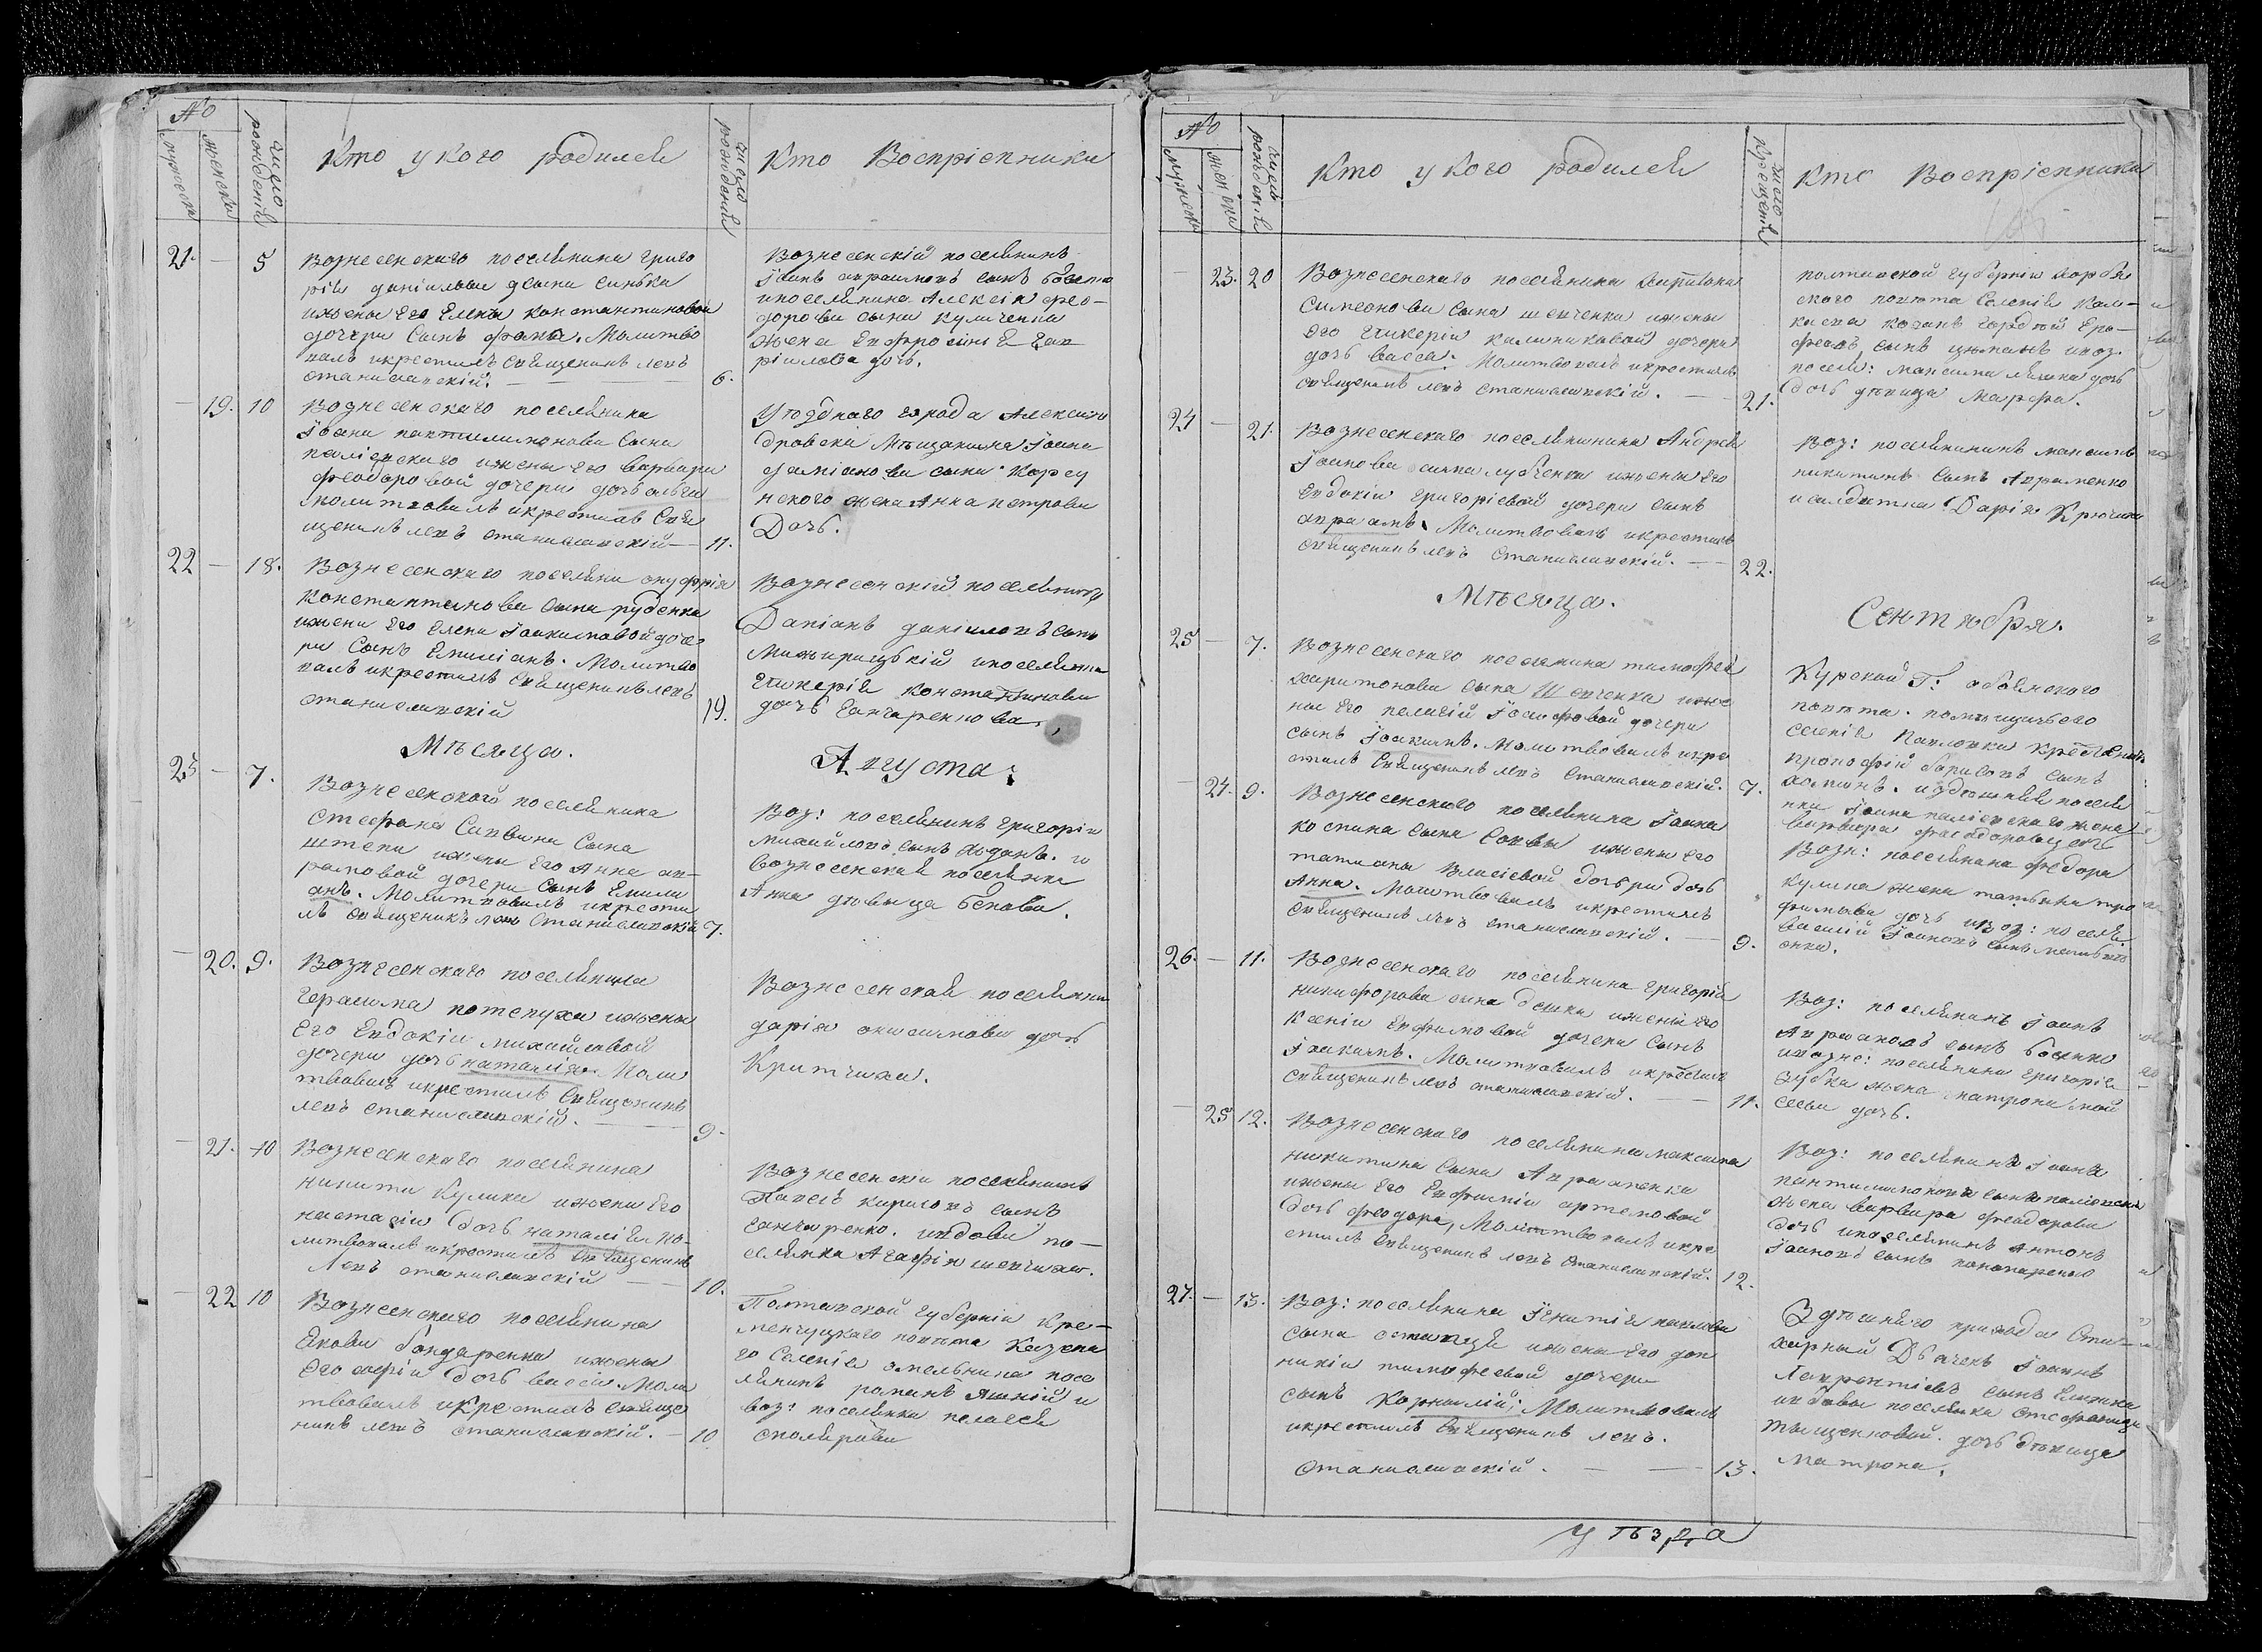 №
мужеска
женска
число рожденія
Кто у кого родился
число рожденія
Кто Воспріемники
21. — 5
Вознесенскаго поселянина Григо
рія даніилова сына синька
ижены Его Елены константиновой
дочери Сынъ фома. Молитво
валъ икрестилъ Священикъ левъ
станиславскій. 6.
Вознесенскій поселянинъ
Іоанъ аврамовъ сынъ
ипоселянина Алексія фео-
дорова сына куличенка
жена Евфросинія Гав
ріилова дочь.
— 19. 10
Вознесенскаго поселянина
Іоана пантилимонова Сына
паліевскаго ижены его варвары
феодоровой дочери дочь ольга
молитвовалъ икрестилъ Свя
щеникъ левъ станиславскій — 11.
Уѣзднаго города Алексан
дровска Мѣщанина Іоана
даміанова сына
жена Анна петрова
Дочь.
22 — 18.
Вознесенскаго поселяни онуфрія
Константинова сына руденка
ижены Его Елены Іоакимовой доче
ри Сынъ Емиліанъ. Молитво
валъ икрестилъ Священикълевъ
станиславскій 19.
Вознесенскій поселянинъ
Даміанъ даніиловъ сынъ
Мижирицькій ипоселянка
Гликерія константинова
дочь Ганчаренкова.
Мѣсяца.
Августа:
23 — 7.
Вознесенскаго поселянина
Стефана Саввина Сына
штепы ижены Его Анны ав-
рамовой дочери Сынъ Емили
анъ. Молитвовалъ икрести
лъ священикъ левъ Станиславскій 7.
Воз: поселянинъ григорій
михайловъ сынъ жданъ. и
вознесенская поселянка
Анна дѣвица бекова.
— 20. 9.
Вознесенскаго поселянина
герасима потепуха ижены
Его Евдокіи михайловой
дочери дочь наталія. Моли
твовалъ икрестилъ Священикъ
левъ станиславскій. 9.
Вознесенская поселянка
дарія анисимова дочь
Критчиха.
— 21. 10
Вознесенскаго поселянина
никиты кулика ижены Его
настасіи дочь наталія мо-
литвовалъ икрестилъ Священикъ
Левъ станиславскій — 10.
Вознесенскіи поселянинъ
Павелъ кириловъ сынъ
Ганчаренко. ивдова по-
селянка Агафія шевчиха.
— 22 10
Вознесенскаго поселянина
Якова бондаренка ижены
Его марфіи дочь васса. Моли
твовалъ икрестилъ Священ
никъ левъ станиславскій. — 10
Полтавской губерніи Кре-
менчуцкаго повѣта Казена
го Селенія омельника посе
лянинъ романъ и
воз: поселянка пелагея
столярова
№
мужеска
женска
число рожденія
Кто у кого родился
число крещенія
Кто Воспріемники
— 23. 20
Вознесенскаго поселянина харитона
Симеонова Сына шевченка ижены
Его Гликеріи калиниковой дочери
дочь васса. Молитвовалъ икрестилъ
священикъ левъ станиславскій. — 21.
полтавской губерніи
скаго повѣта Селенія Кам-
козакъ гордѣй Еро-
феевъ сынъ ивоз.
посел: максима ляшка дочь
дѣвица Марфа.
24 — 21.
Вознесенскаго поселянинна Андрея
Іоанова сына лубченка ижены Его
Евдокіи Григоріевой дочери сынъ
авраамъ. Молитвовалъ икрестилъ
священикъ левъ Станиславскій. — 22.
Воз: поселянинъ максимъ
никитинъ сынъ Авраменко
исолдатка Дарія Крючиха
Мѣсяца.
Сентября.
25 — 7.
Вознесенскаго поселянина тимофея
харитонова сына Шевченка иже
ны Его пелагіи Іосифовой дочери
сынъ Іоакимъ. Молитвовалъ икре
стилъ Священикъ левъ Станиславскій. 7.
Курской Г: обоянскаго
повѣта. помѣщичьего
селенія Павловки крестьянинъ
прокофій борисовъ сынъ
издешняя поселя
нка Іоана паліевскаго жена
варвара феодорова дочь
— 24. 9.
Вознесенскаго поселянина Іоана
космина сына Саввы ижены Его
татианы Власіевой дочери дочь
Анна. Молитвовалъ икрестилъ
священикъ левъ станиславскій. — 9.
Возн: поселянина федора
кулика жена татьяна тро
фимова дочь ивоз: поселя.
василій Іоановъ сынъ
26. — 11.
Вознесенскаго поселянина григорія
никифорова сына дешка ижены Его
Ксеніи Евфимовой дочери Сынъ
Іоакимъ. Молитвовалъ икрестилъ
Священикълевъ станиславскій. — 11.
Воз: поселянинъ Іоанъ
Аврамовъ сынъ
ивозне: поселянина григорія
зубка жена матрона мой
сеева дочь.
— 25 12.
Вознесенскаго поселянина максима
никитина Сына Авраменка
ижены Его Евфиміи артемовой
дочь феодора, Молитвовалъ икре
стилъ Священикъ левъ Станиславскій. 12.
Воз: поселянина Іоана
пантилимонова сына паліевскаго
жена варвара феодорова
дочь ипоселянинъ Антонъ
Іоановъ сынъ понамаренко
27. — 13.
Воз: поселянина Ігнатія павлова
сына остапця ижены Его дом
никіи тимофеевой дочери
сынъ Корнилій; Молитвовалъ
икрестилъ Священикъ левъ.
станиславскій. — 13.
Здѣшняго прихода Сти-
харный Дьячекъ Іоанъ
Лаврентіевъ сынъ
ивдовы поселянка Стефаниды
тыщенковой. дочь дѣвица
Матрона.
уѣзда